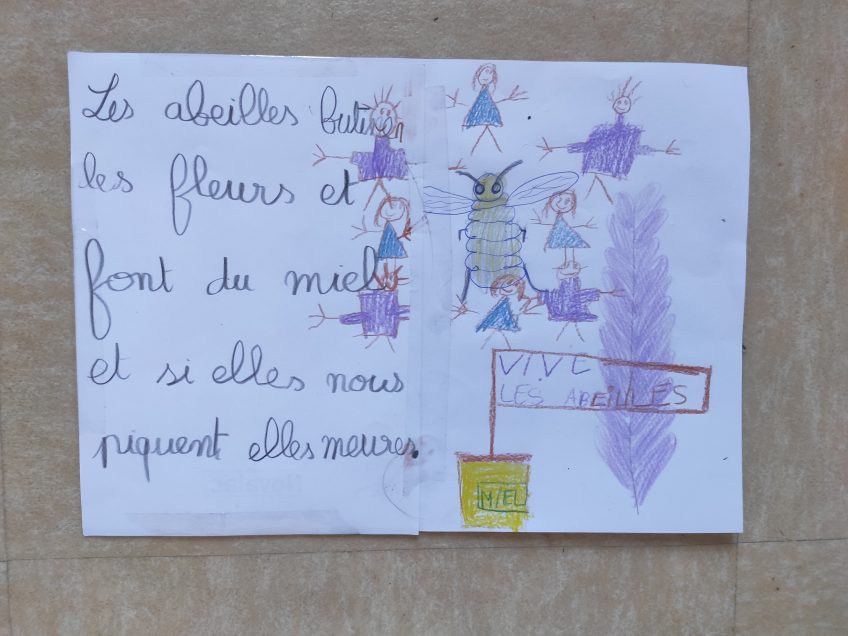 Les abeilles butinen
les fleurs et
font du miel
et si elles nous
piquent elles meures.
VIVE
LES ABEILLES
MIEL